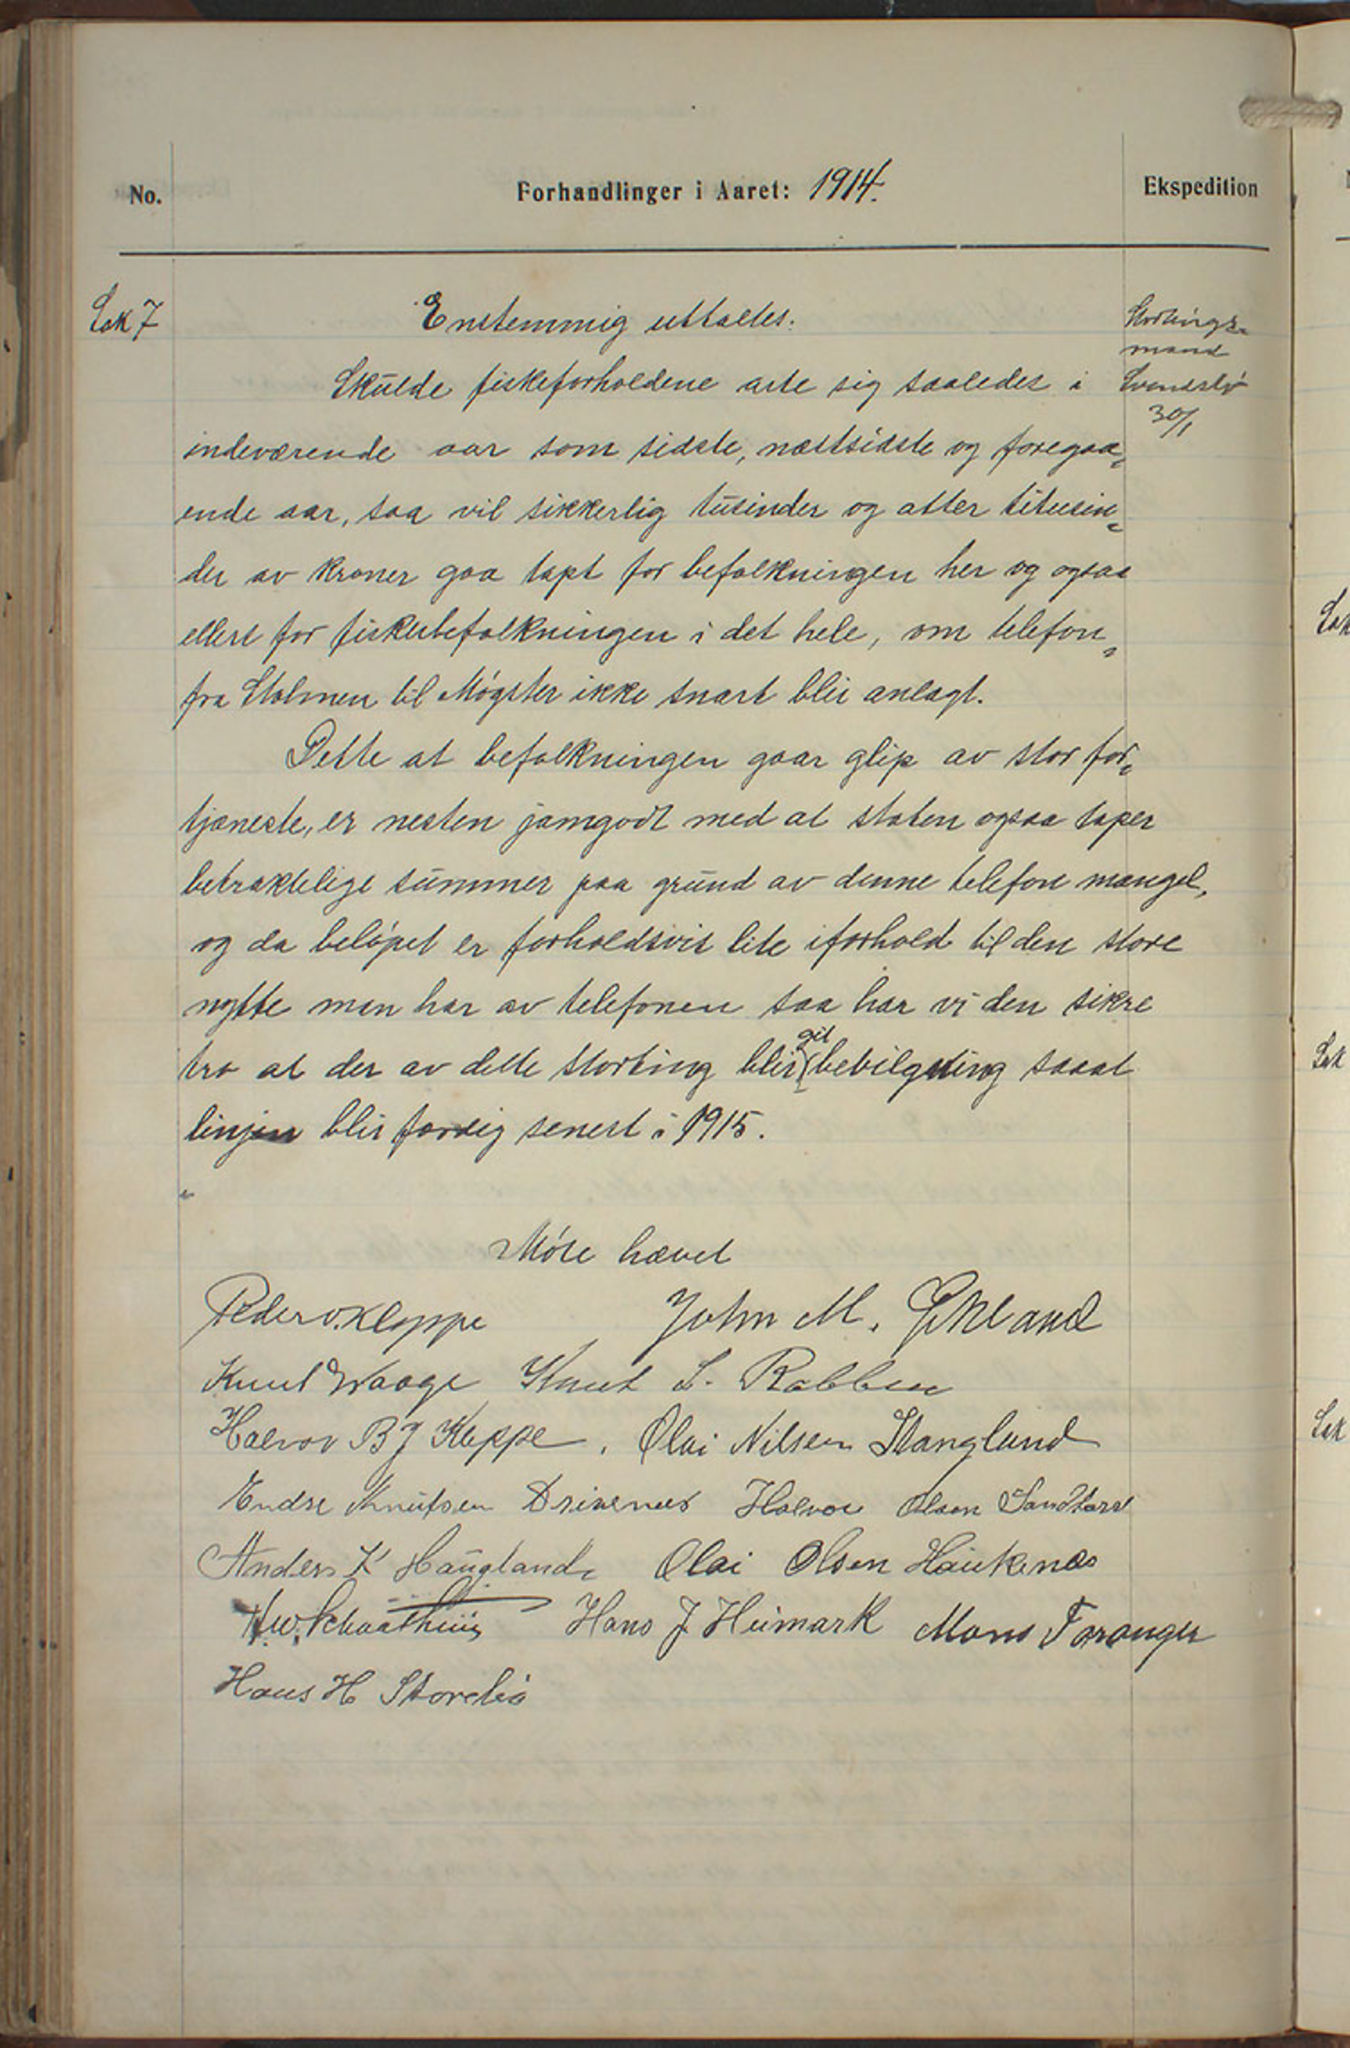 No.
Forhandlinger i Aaret: 1914.
Ekspedition
Sak 7
Enstemmig uttaltes.
Stortings-
mand
Svendsbö
30/1
Skulde fiskeforholdene arte sig saaledes i
indeværende aar som sidste, næstsidste og foregaa-
ende aar, saa vil sikkerlig tusinder og atter titusin-
der av kroner gaa tapt for befolkningen her og ogsaa
ellers for fiskerbefolkningen i det hele, om telefon-
fra Stolmen til Møgster ikke snart blir anlagt.
Dette at befolkningen gaar glip av stor for-
tjaneste, er nesten jamgodt med at staten ogsaa taper
betraktelige summer paa grund av denne telefon mangel,
og da beløpet er forholdsvis lite iforhold til den store
nytte man har av telefonen saa har vi den sikre
tro at der av dette storting blir git bevilgning saaat
linjen blir færdig senest i 1915.
Møte hævet
Peder O. Kleppe John M. Økland
Knut Waage Knut S. Rabben
Halvor B J Kleppe. Olai Nilsen Stangeland
Endre Knutsen Drivenes Halvor Olsen Sandtorv
Anders K Haugland Olai Olsen Haukenæs
H.W. Schaathun Hans J Heimark Mons Foranger
Hans H Storebø
Sak
Sak
Sak